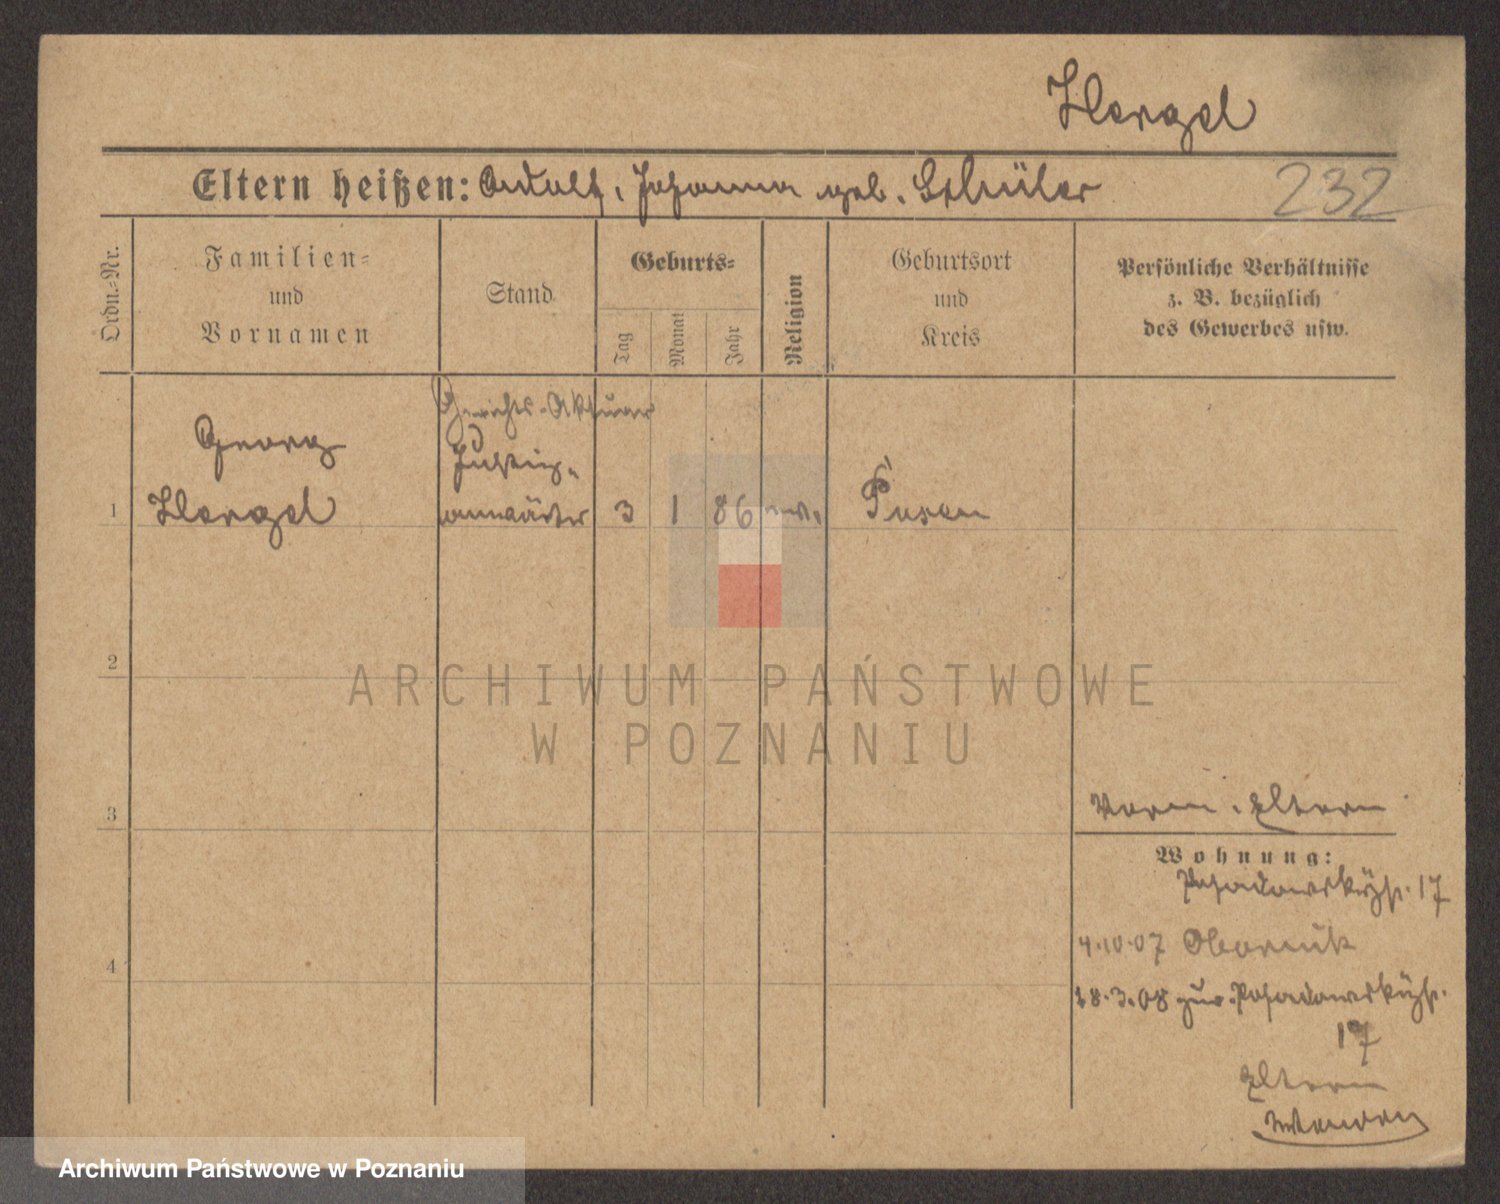 Hergel
Eltern heißen: Adolf, Johanna geb. Schüler
232
Ordn.=Nr.
Familien=
und
Vornamen
Stand
Geburts=
Tag
Monat
Jahr
Religion
Geburtsort
und
Kreis
Persönliche Verhältnisse
z. B. bezüglich
des Gewerbes usw.
Gerichts-Aktuar
Georg
Justiz-
1 Hergel anwärter 3 1 86 ev. Posen
2
ARCHIWUM PAŃSTWOWE
W POZNANIU
3
Eltern
Wohnung:
Posadowskystr. 17
4.10.07 Obornik
4
18.3.08 zur. Posadowskystr.
17
Eltern
Archiwum Państwowe w Poznaniu